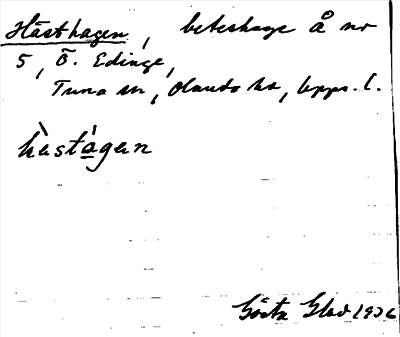 Hästhagen, beteshage å nr
5, Ö. Edinge,
Tuna sn, Olands hd, Upps. l.
hὰstágen
Gösta Glad 1936